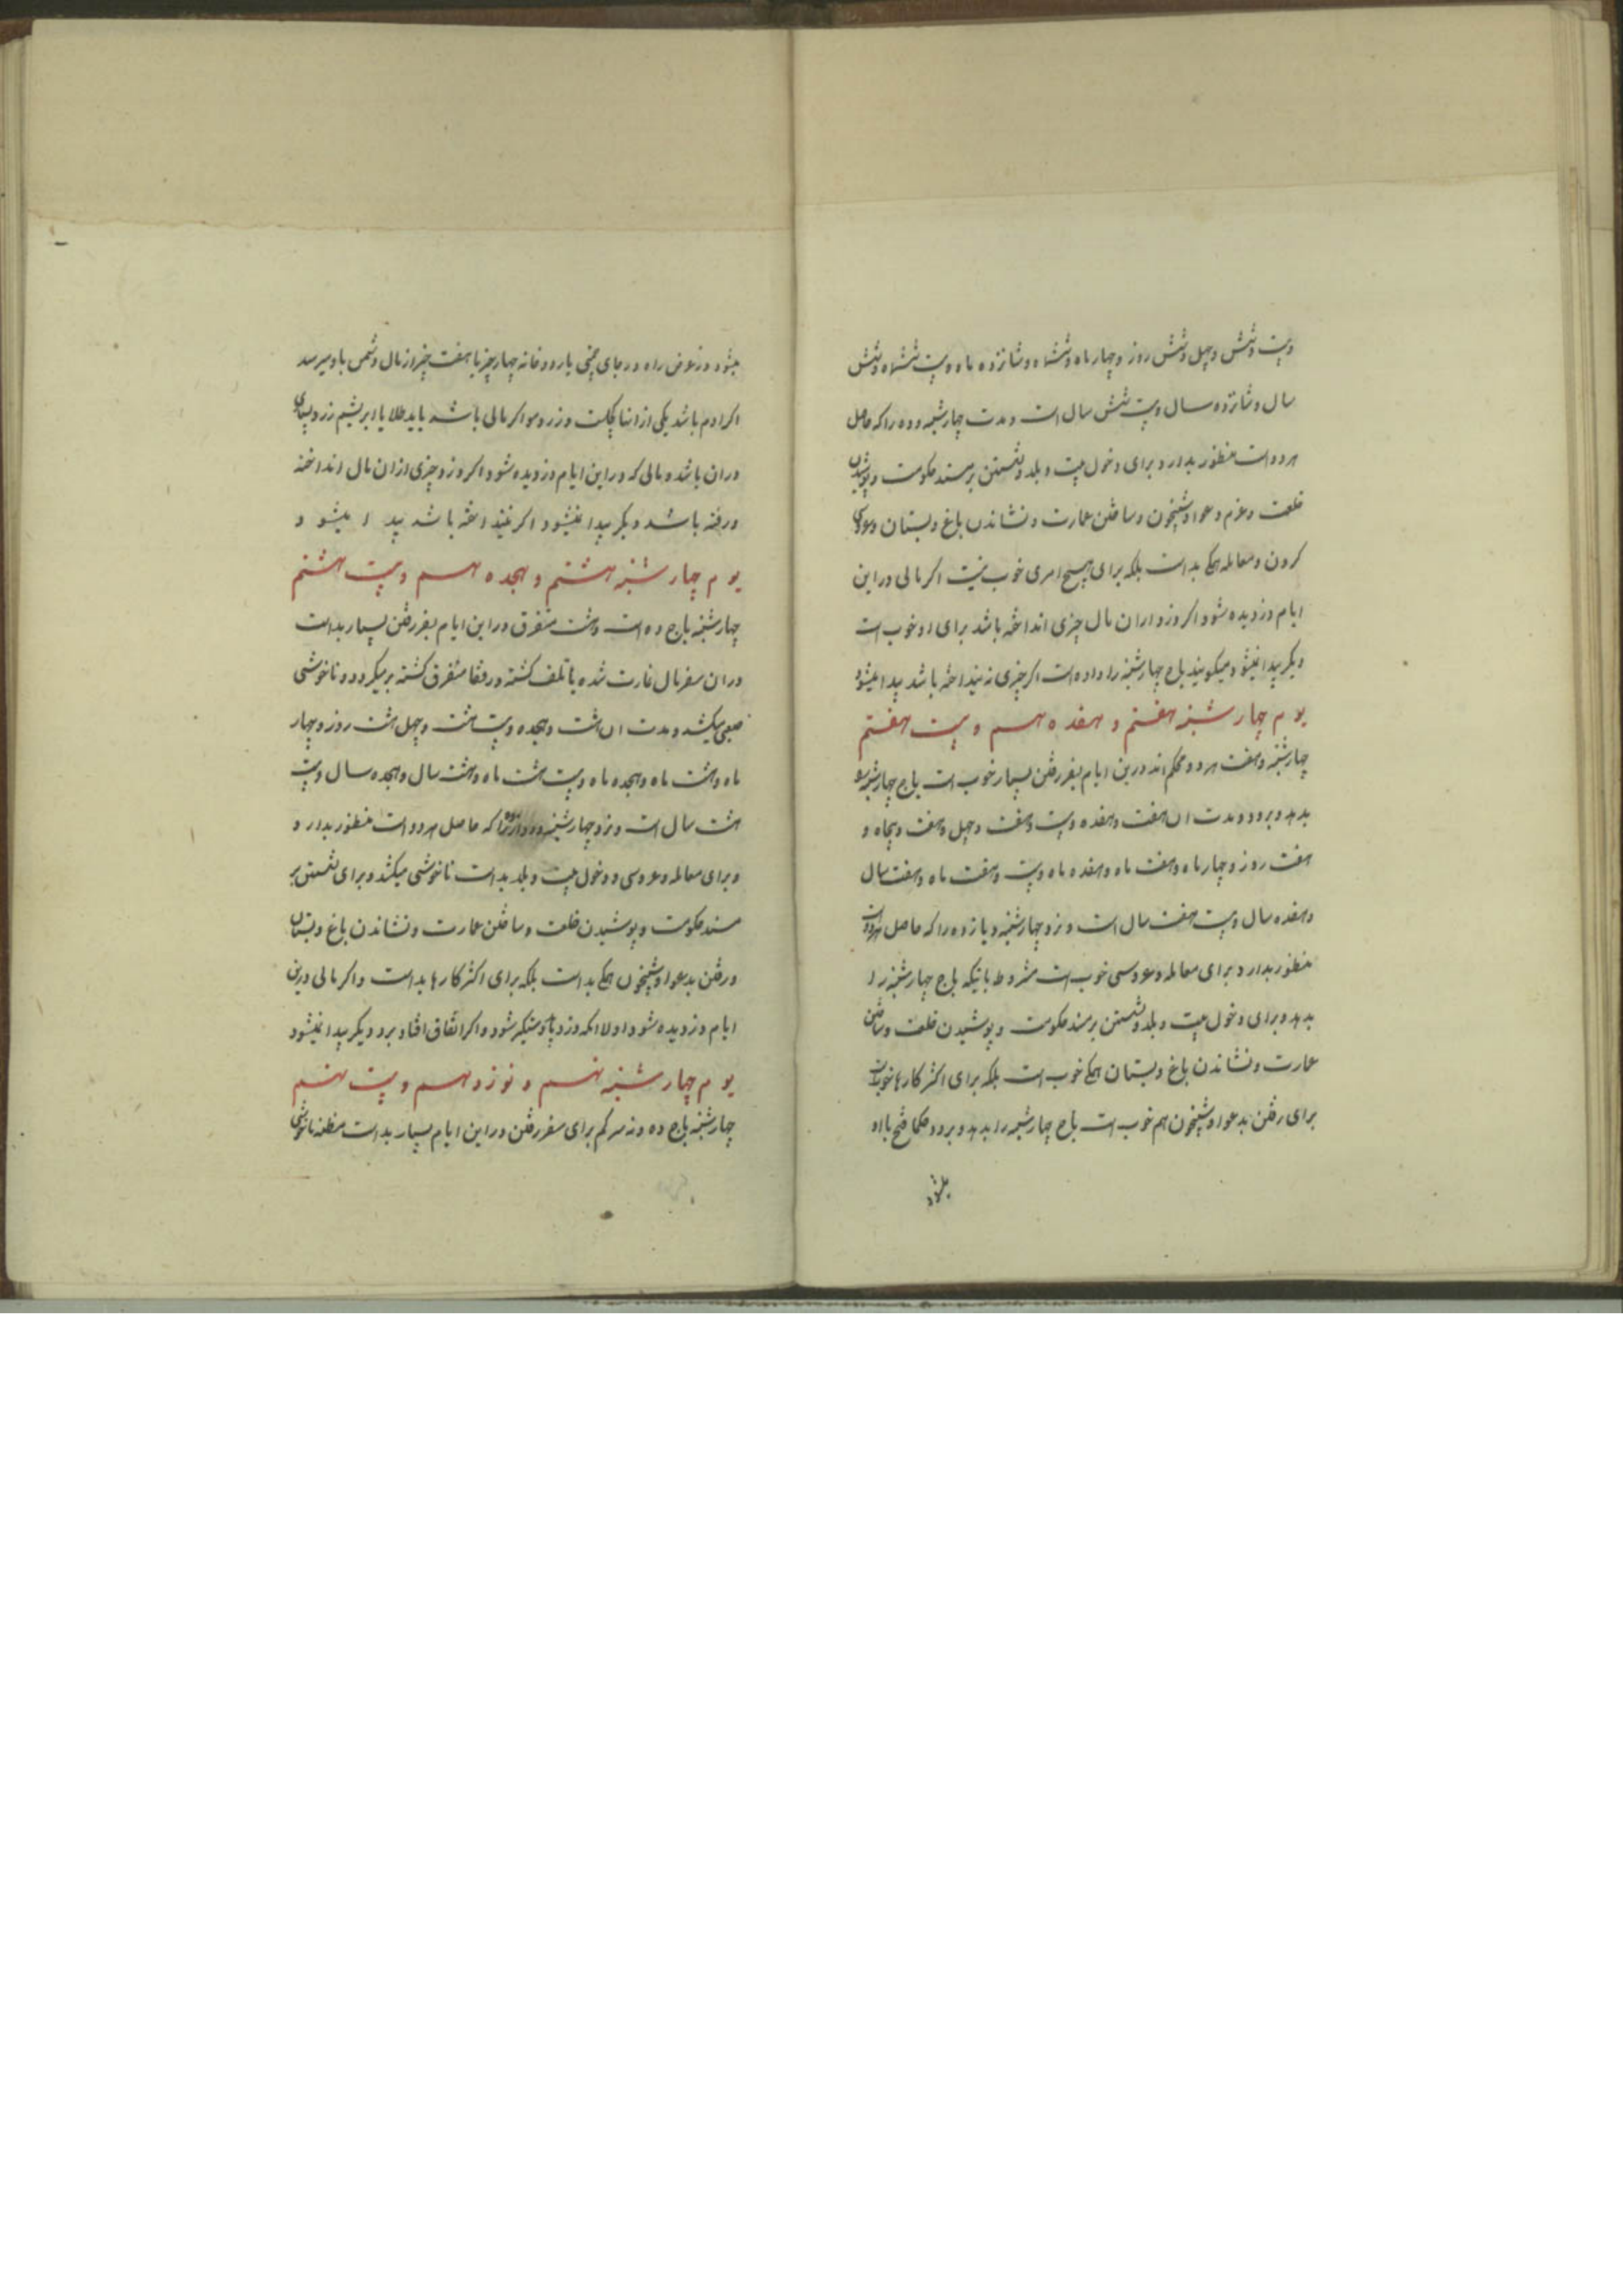 وبیت وشش وچهل وشش روز وچهار ماه وششماه وشانزده ماه وبیت ششماه وشش
سال وشانزده سال وبیت شش سال است ومدت چهارشنبه وده را که حاصل
هردو است منظور بدارد وبرای دخول بیت وبلد ونشستن برمسند حکومت وپوشیدن
خلعت وعزم دعوا وشبیخون وساختن عمارت ونشاندن باغ وبستان وعروسی
کردن ومعامله همکی بد است بلکه برای هیچ امری خوب نیست اکر مالی در این
ایام دزدیده شود اکر دزد از ان مال چیزی انداخته باشد برای او خوب است
دیکر پیدا نمیشود میکویند باج چهارشنبه را داده است اکر چیزی نه نینداخته باشد پیدا میشود
یوم چهار شنبه هفتم و هفدهم و بیت هفتم
چهارشنبه وهفت هردو محکم اند درین ایام بسفر رفتن بسیار خوب است باج چهارشنبه را
بدهد وبرود ومدت ان هفت وهفده وبیت وهفت وچهل وهفت وپنجاه و
هفت روز وچهار ماه وهفت ماه وهفده ماه وبیت وهفت ماه وهفت سال
وهفده سال وبیت هفت سال است ونزد چهارشنبه ویازده را که حاصل هردوات
منظور بدارد وبرای معامله وعروسی خوب است مشروط باینکه باج چهارشنبه را
بدهد وبرای دخول بیت وبلد ونشستن برمسند حکومت وپوشیدن خلعت وساختن
عمارت ونشاندن باغ وبستان همکی خوب است بلکه برای اکثر کارها خوبست
برای رفتن بدعوا وشبیخون هم خوب است باج چهارشنبه را بدهد وبرود حکما فتح با او
میشود
میشود ودر عوض راه در جای یا در خانه چهار چیز یا هفت چیز از مال دشمن باو میرسد
اکر ادم باشد یکی از انها وزرد مو اکر مالی باشد یا ید طلا یا ابریشم زرد
دران باشد ومالی که در این ایام دزدیده شود اکر دزد چیزی از ان مال انداخته
ورفته باشد دیکر پیدا نمیشود اکر نینداخته باشد پیدا میشود
یوم چهار شنبه هشتم و هجدهم و بیت هشتم
چهارشنبه باج ده است وهشت متفرق در این ایام بسفر رفتن بسیار بد است
دران سفر مال غارت شده یا تلف کشته ورفقا متفرق کشته برمیکردد وناخوشی
صعبی میکشد ومدت ان هشت وهجده وبیت هشت وچهل هشت روز وچهار
ماه وهشت ماه وهجده ماه وبیت هشت ماه وهشت سال وهجده سال وبیت
هشت سال است ونزد چهارشنبه را که حاصل هردو است منظور بدارد و
وبرای معامله وعروسی ودخول بیت وبلد بد است ناخوشی میکشد وبرای نشستن بر
مسند حکومت وپوشیدن خلعت وساختن عمارت ونشاندن باغ وبستان
ورفتن بدعوا وشبیخون همکی بد است بلکه برای اکثر کارها بد است واکر مالی درین
ایام دزدیده شود اولا انکه دزد دستکیر شود واکر اتفاق افتاد برد دیکر پیدا نمیشود
یوم چهار شنبه نهم و نوزدهم و بیت نهم
چهارشنبه باج ده ونه سرکم برای سفر رفتن در این ایام بسیار بد است مظنه ناخوشی